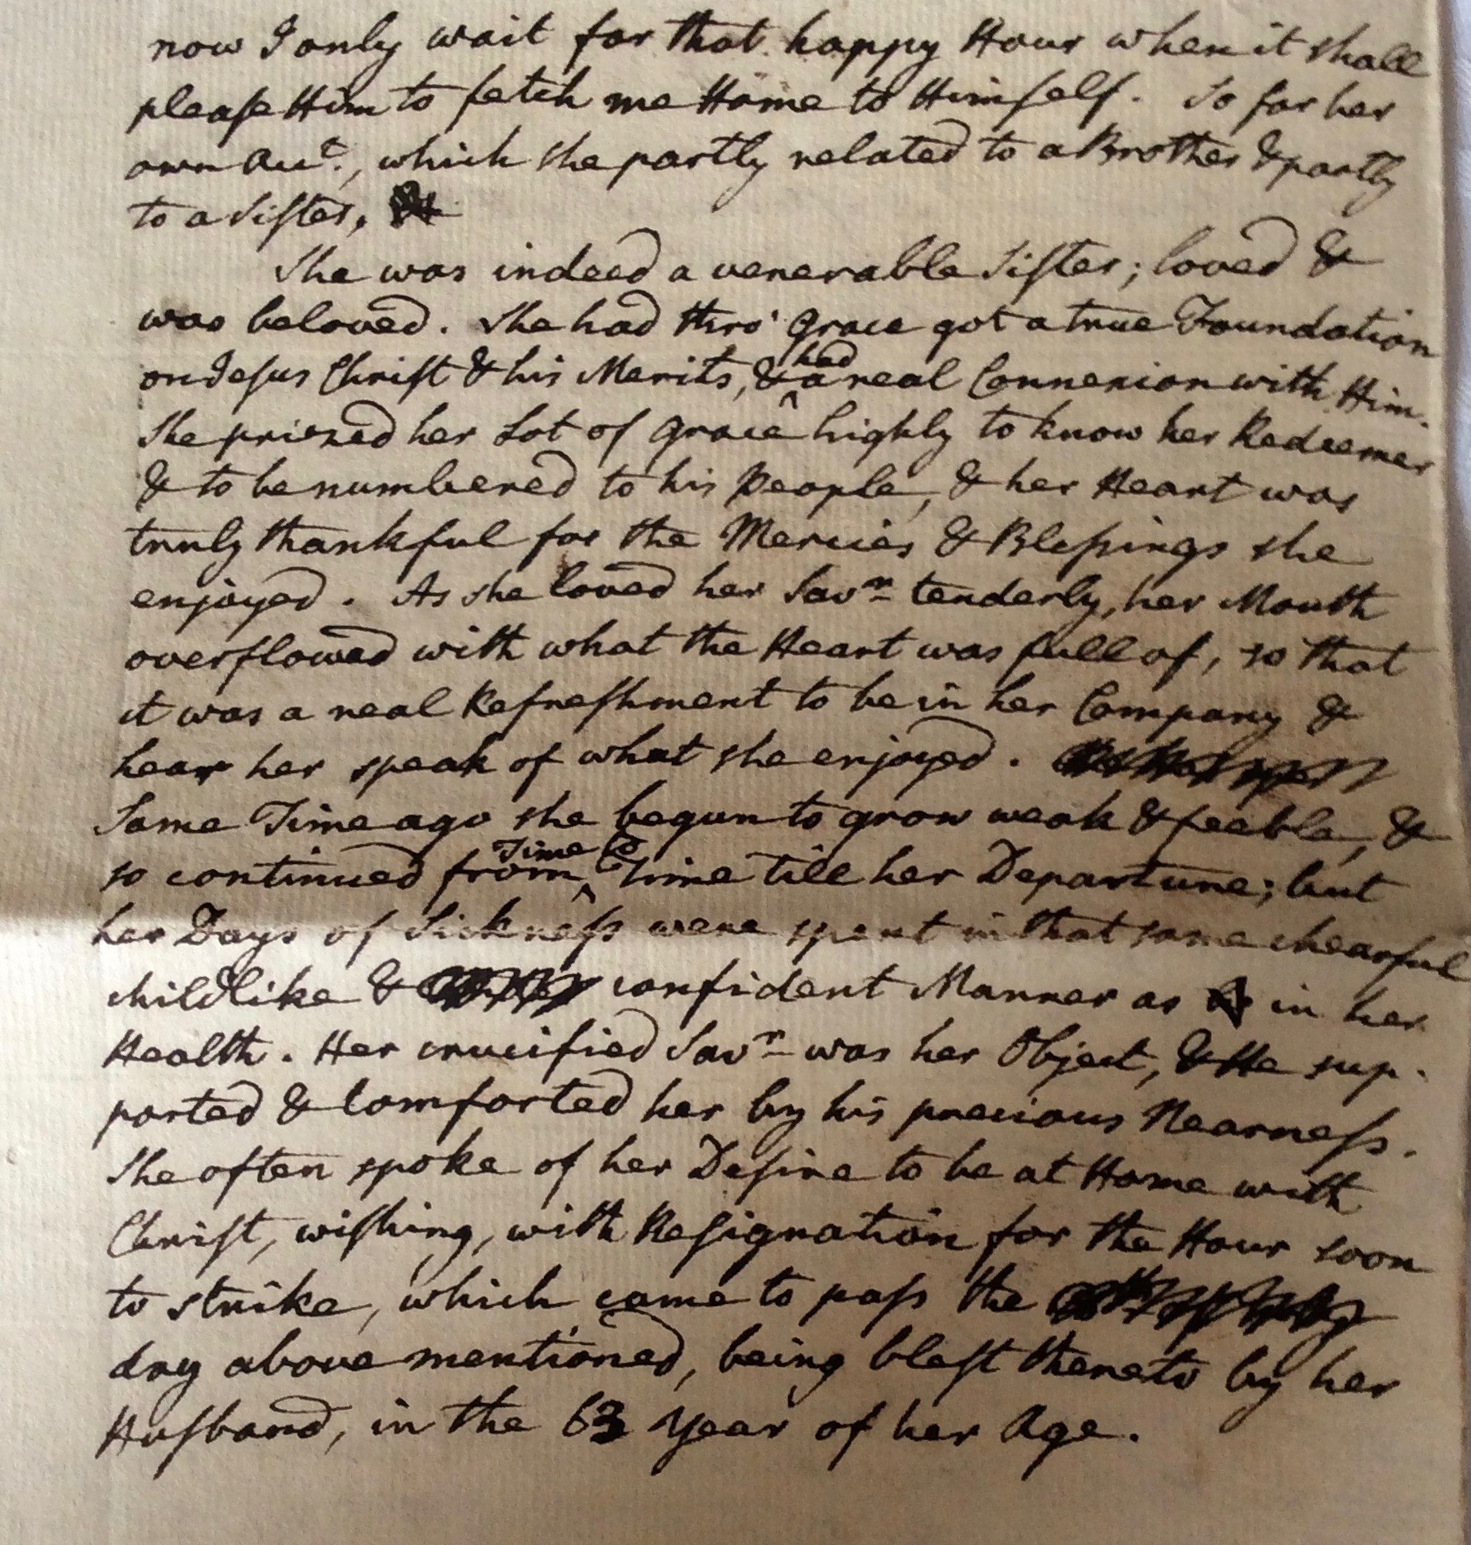 now I only wait for that happy Hour when it shall
please Him to fetch me Home to Himself. So far her
own Acct., which she partly related to a Brother & partly
to a Sister.
She was indeed a venerable Sister; loved &
was beloved. She had thro' Grace got a true Foundation
on Jesus Christ & his Merits, & had a real Connexion with Him.
She priezed her Lot of Grace highly to know her Redeemer
& to be numbered to his People, & her Heart was
truly thankful for the Mercies & Blessings she
enjoyed. As she loved her Savr tenderly, her Mouth
overflowed with what the Heart was full of, so that
it was a real Refreshment to be in her Company &
hear her speak of what she enjoyed.
Some Time ago she begun to grow weak & feeble, &
so continued from Time to Time till her Departure; but
her Days of Sickness were spent in that same chearful
childlike & confident Manner as in her
Health. Her crucified Savr was her Object, & He sup-
ported & comforted her by his precious Nearness.
She often spoke of her Desire to be at Home with
Christ, wishing, with Resignation for the Hour soon
to strike, which came to pass the
day above mentioned, being blest thereto by her
Husband, in the 63 Year of her Age.